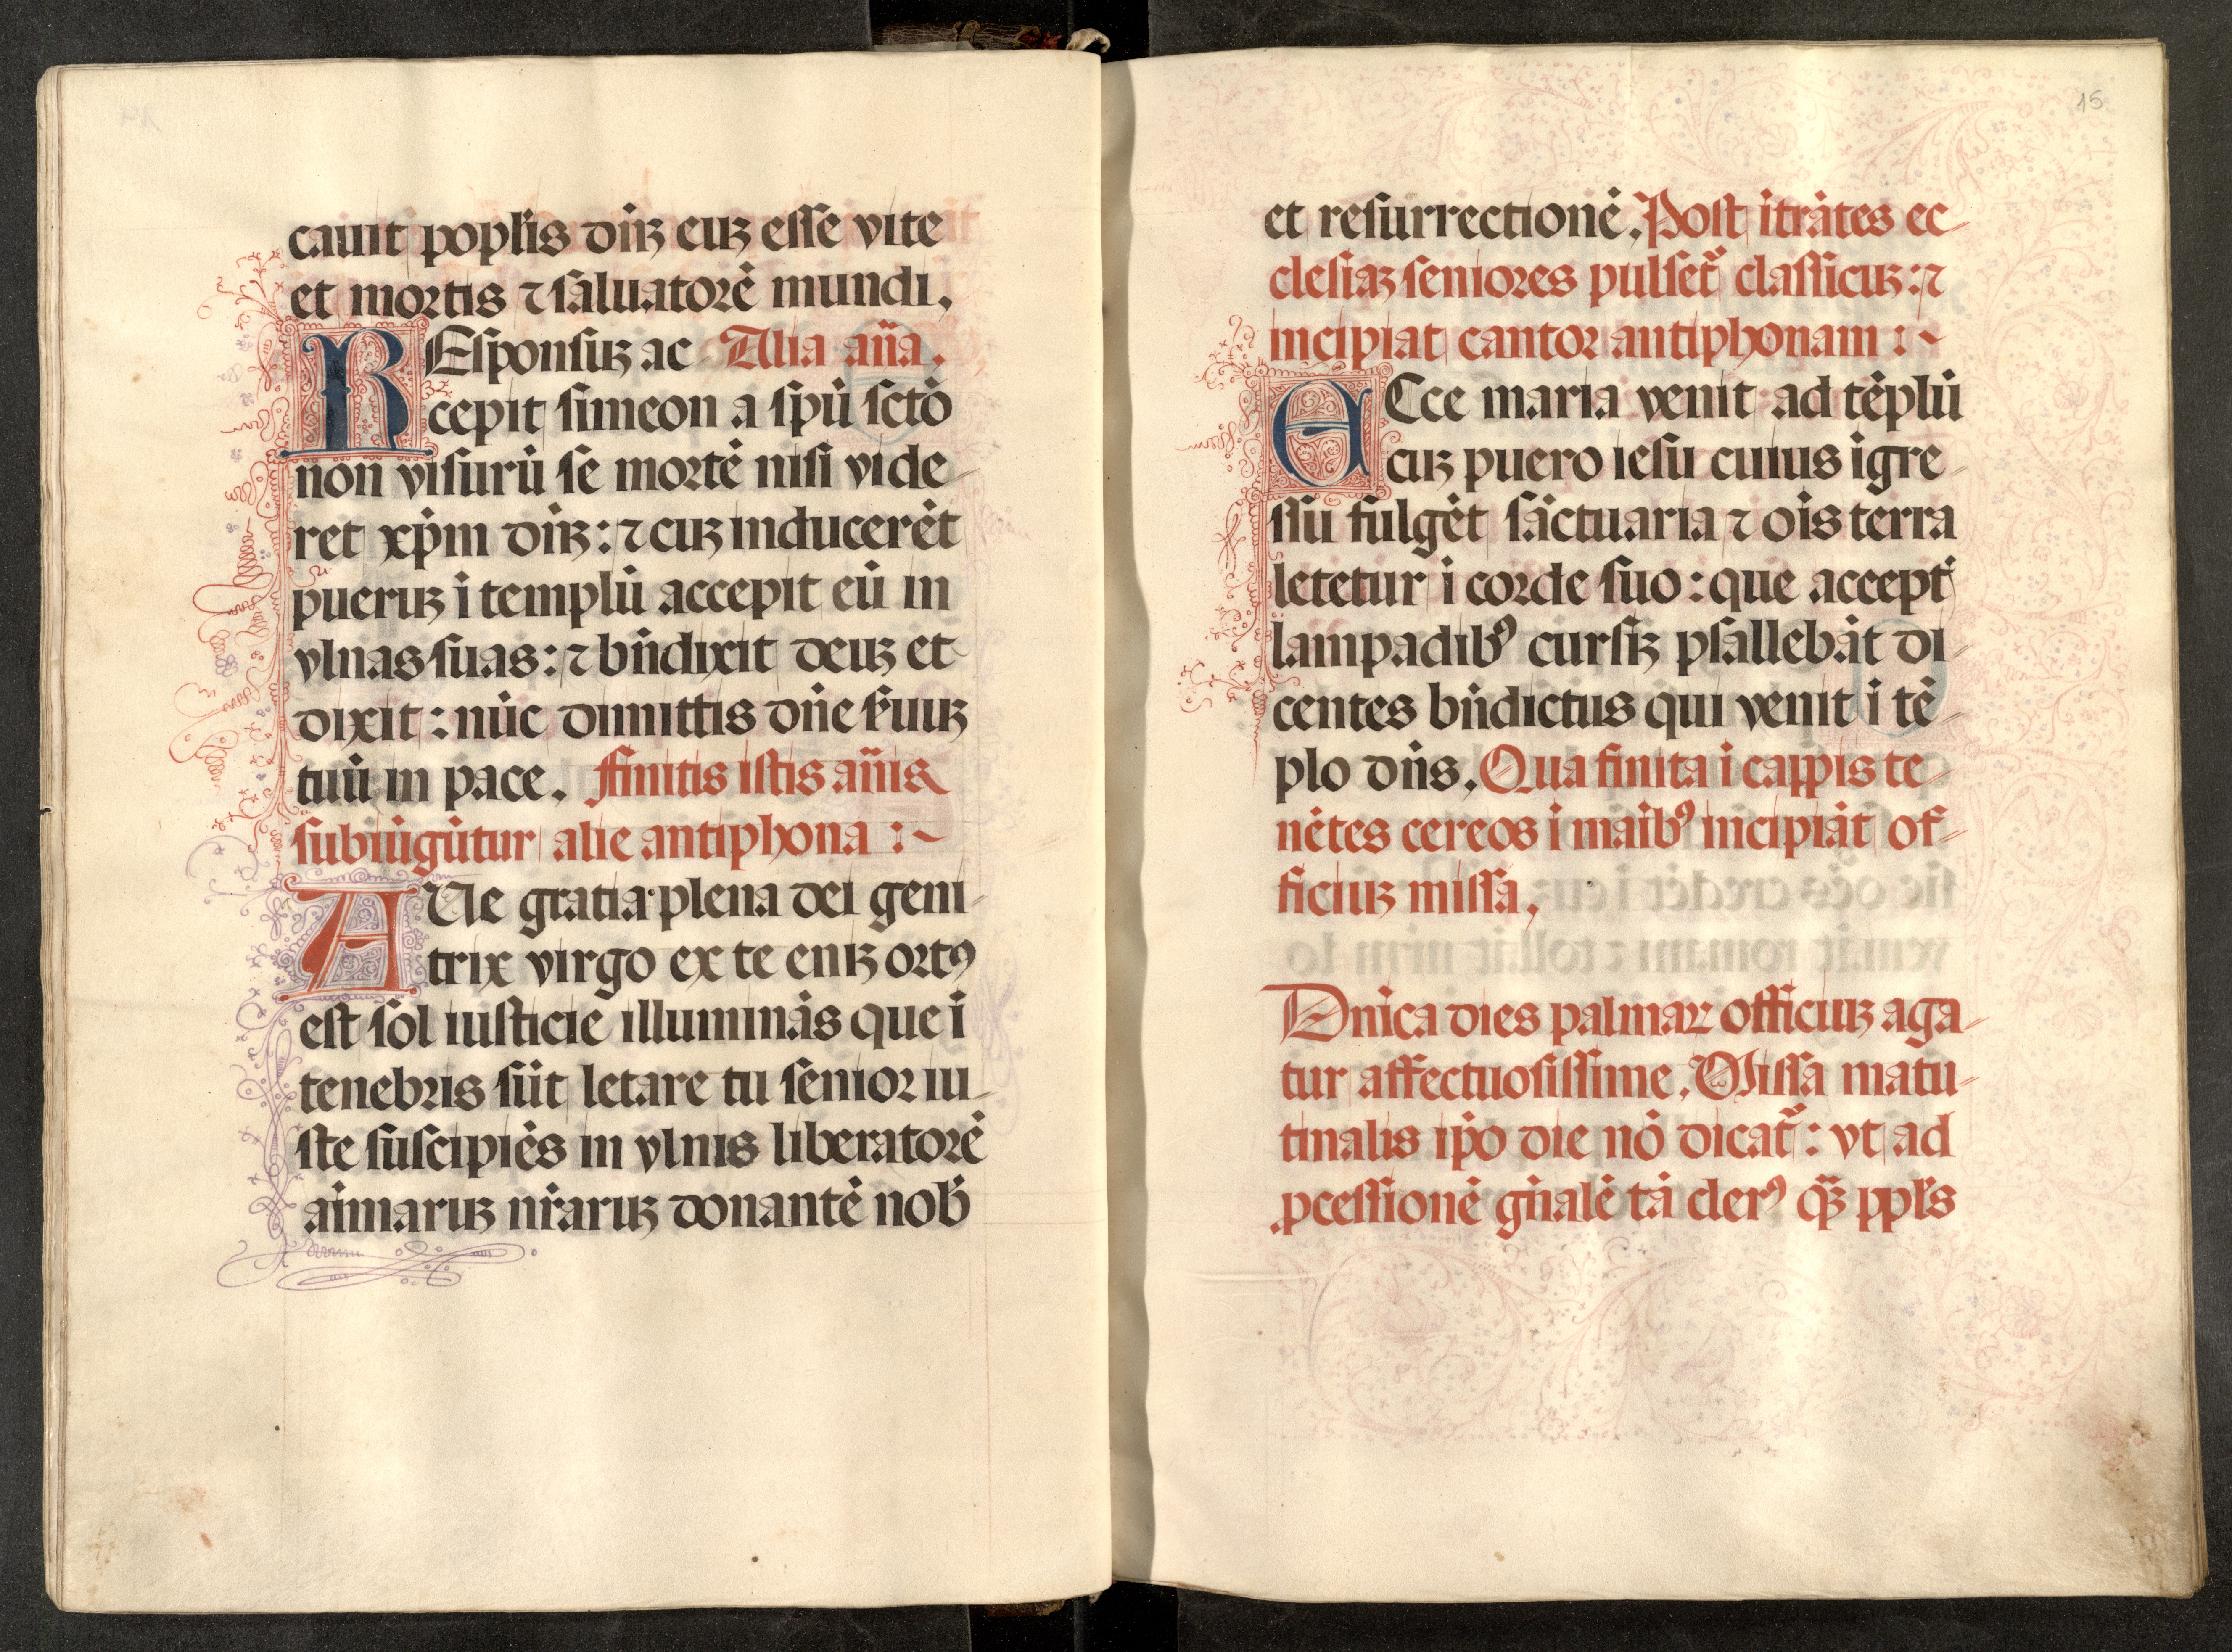 cauit poplis dñꝫ euꝫ esse vite
et mortis ⁊ saluatorē mundi.
REsponsuꝫ ac Alia aña.
cepit simeon a spū sctō
non visurū se mortē nisi vide
ret xp̄m dñꝫ: ⁊ cuꝫ inducerēt
pueruꝫ ī templū accepit eū in
vlnas suas: ⁊ bñdixit deuꝫ et
dixit: nūc dimittis dñe s̄uuꝫ
tuū in pace. Finitis istis añis
subiūgūtur alie antiphona :~
AUe gratia plena dei geni-
trix virgo ex te eniꝫ ortꝰ
est sol iusticie illuminās que ī
tenebris sūt letare tu senior iu-
ste suscipiēs in vlnis liberatorē
aīmaruꝫ nr̄aruꝫ donantē nob̄
15
et resurrectionē. Post ītrātes ec-
clesiaꝫ seniores pulset᷑ classicuꝫ: ⁊
incipiat cantor antiphonam :~
ECce maria venit ad tēplū
cuꝫ puero iesu cuius īgre-
ssu fulgēt sāctuaria ⁊ oīs terra
letetur ī corde suo: que accept̄
lampadibꝰ cursiꝫ psallebāt di-
centes bñdictus qui venit ī tē-
plo dñs. Qua finita ī cappis te-
nētes cereos ī maībꝰ incipiāt of-
ficiuꝫ missa.
Dñica dies palmaꝝ officiuꝫ aga-
tur affectuosissime. Missa matu-
tinalis ip̄o die nō dicat᷑: vt ad
ꝓcessionē gñalē tā clerꝰ qꝫ̄ ppl̄s